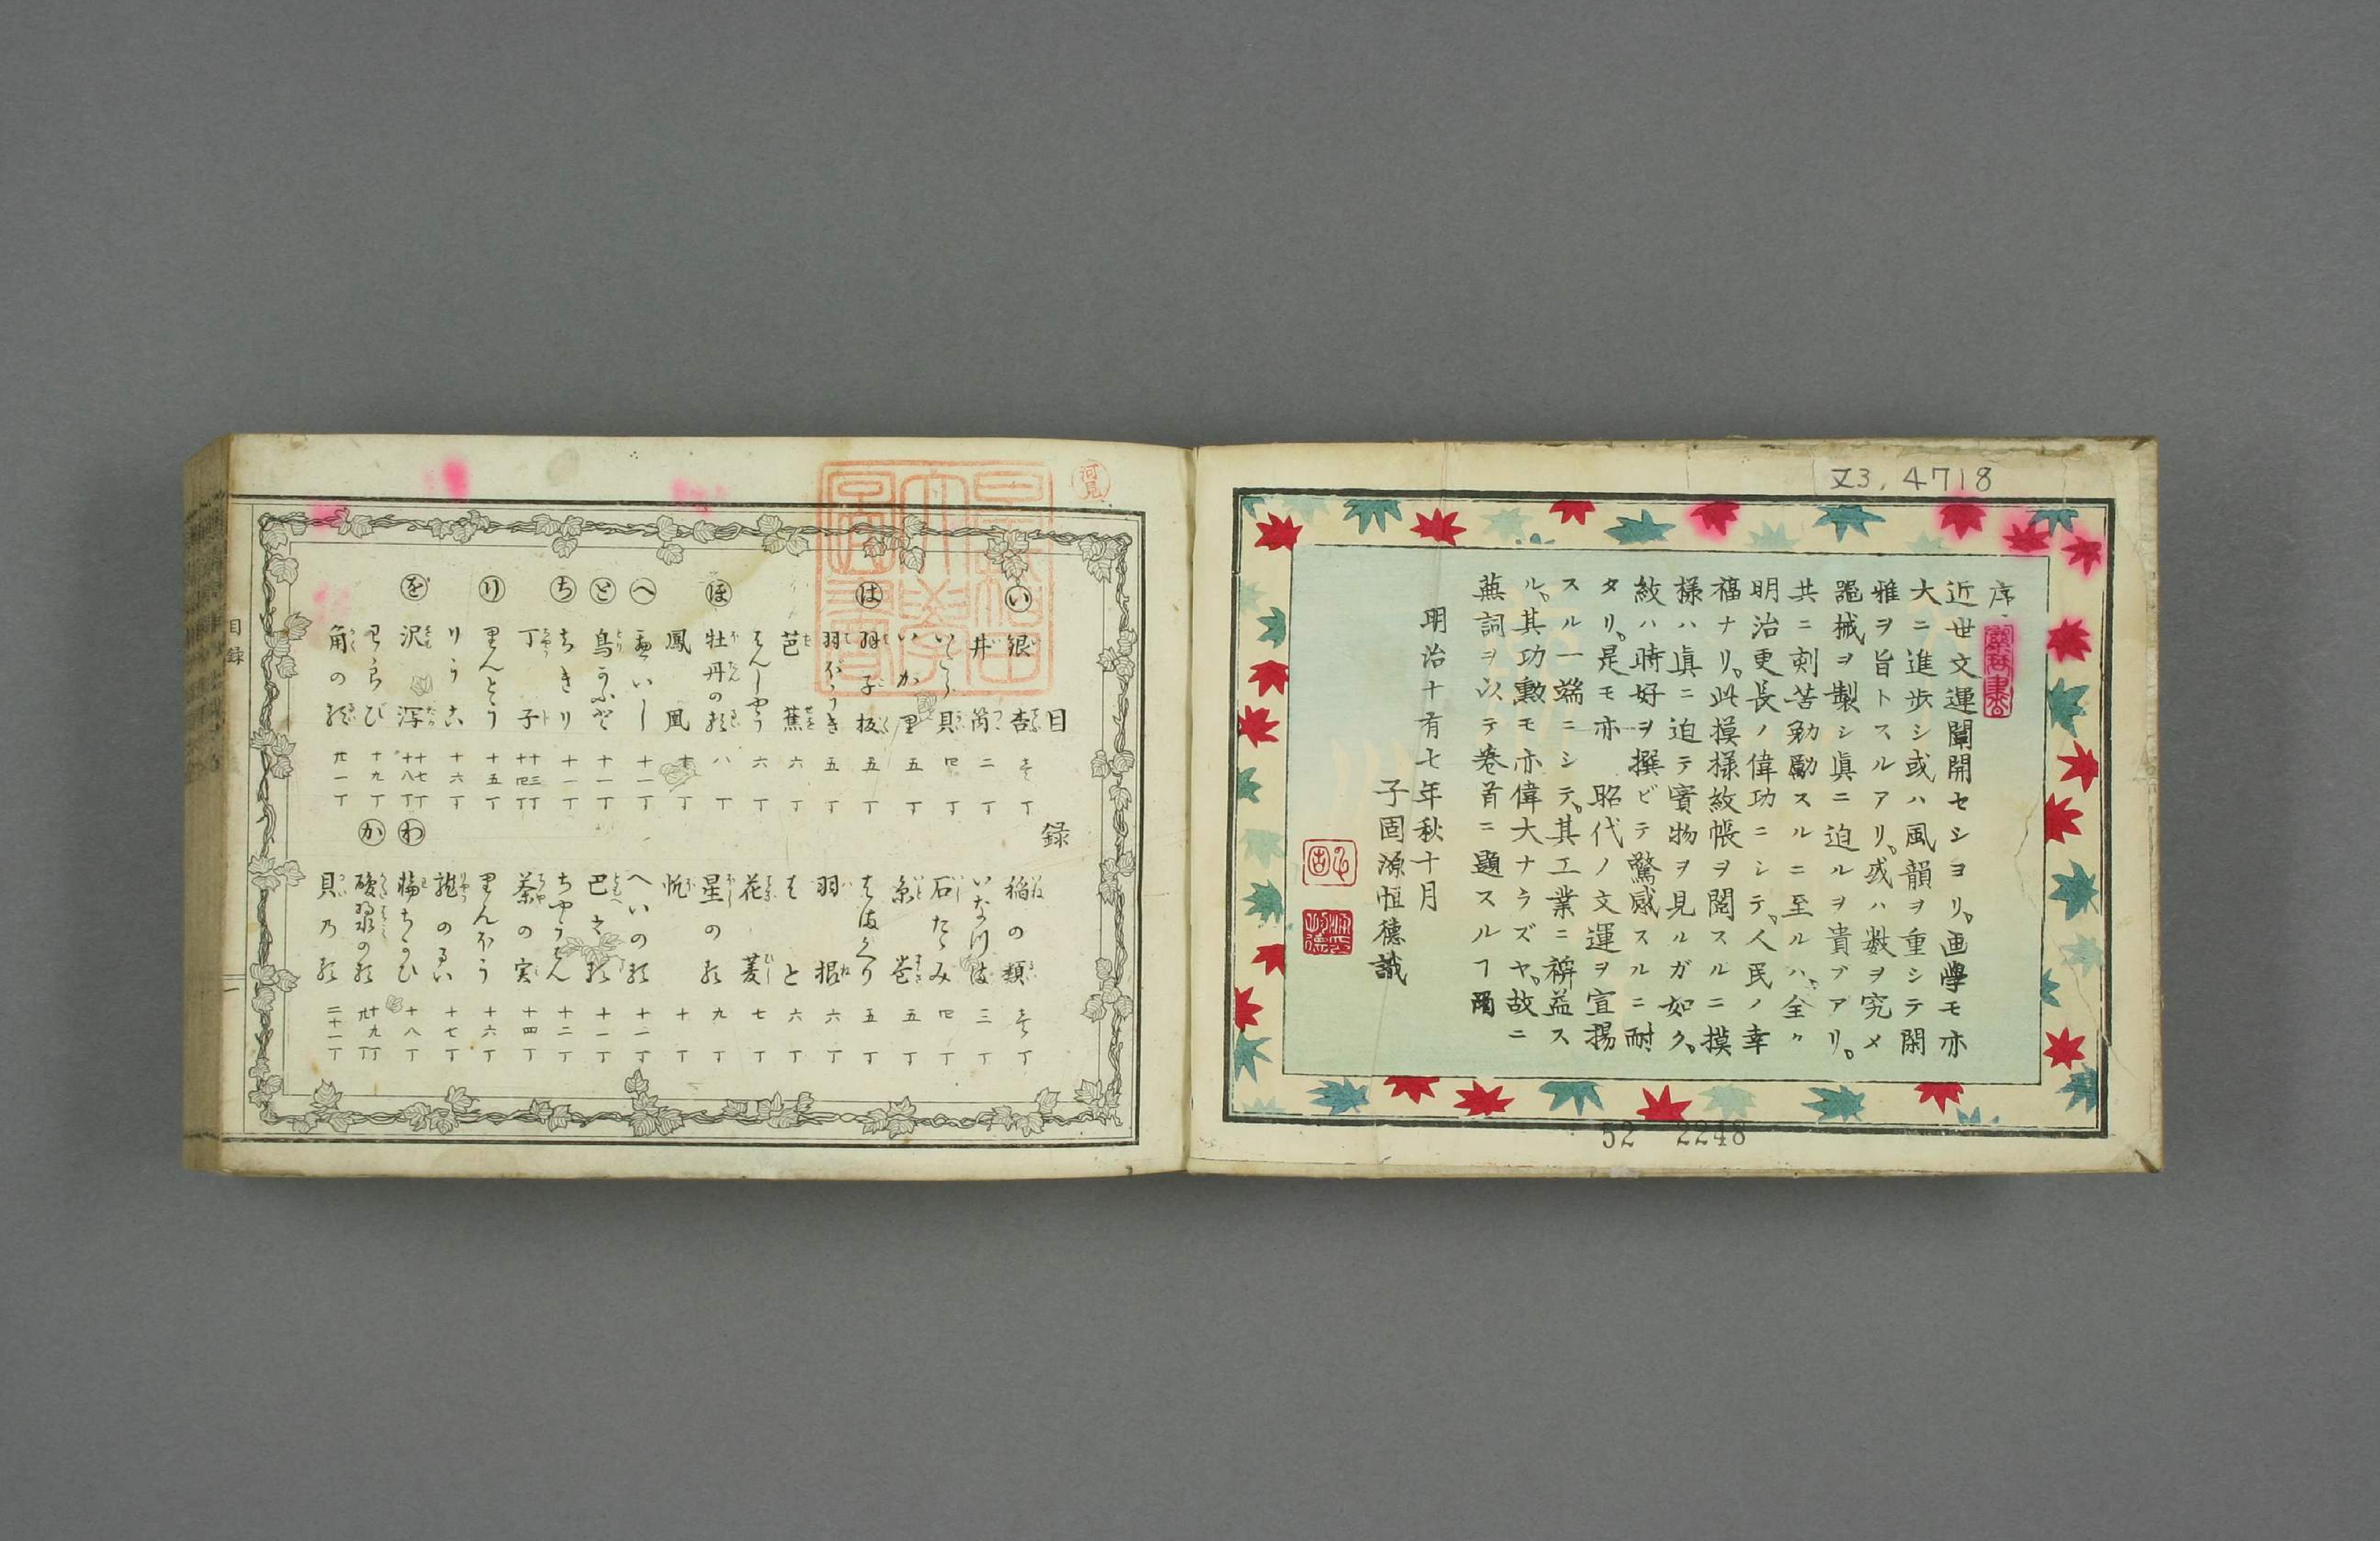 序
近世文運闡開セシヨリ。画學モ亦
大ニ進歩シ或ハ風韻ヲ重シテ閑
雅ヲ旨トスルアリ。或ハ数ヲ究メ
噐械ヲ製シ眞ニ迫ルヲ貴ブアリ。
共ニ刻苦勉勵スルニ至ルハ、全ク
明治更長ノ偉功ニシテ。人民ノ幸
福ナリ。此摸様紋帳ヲ閲スルニ摸
様ハ眞ニ迫テ實物ヲ見ルガ如ク。
紋ハ時好ヲ撰ビテ驚感スルニ耐
タリ。是モ亦 昭代ノ文運ヲ宣揚
スル一端ニシテ。其工業ニ裨益ス
ル。其功勲モ亦偉大ナラズヤ。故ニ
蕪詞ヲ以テ巻首ニ題スルヿ爾
明治十有七年秋十月
子固源恒德識
又3,4718
52 2248
河見
目録
い 銀杏 壱丁
井筒 二丁
貝 四丁
いか里 五丁
は 羽子板 五丁
羽ばうき 五丁
芭蕉 六丁
六丁
ほ 牡丹の類 八丁
鳳凰 十丁
へ いし 十一丁
と 鳥 十一丁
ち ちきり 十一丁
丁子 十三丁 十四丁
り りんとう 十五丁
りうこ 十六丁
を 沢瀉 十七丁 十八丁
十九丁
角の類 廿一丁
稲の類 壱丁
いなづま 三丁
石たゝみ 四丁
糸巻 五丁
五丁
羽根 六丁
六丁
花菱 七丁
星の類 九丁
帆 十丁
へいの類 十一丁
巴之類 十一丁
十二丁
茶の実 十四丁
りんぼう 十六丁
龍のるい 十七丁
わ 輪ちがひ 十八丁
か 十九丁 廿丁
貝乃類 二十一丁
目録